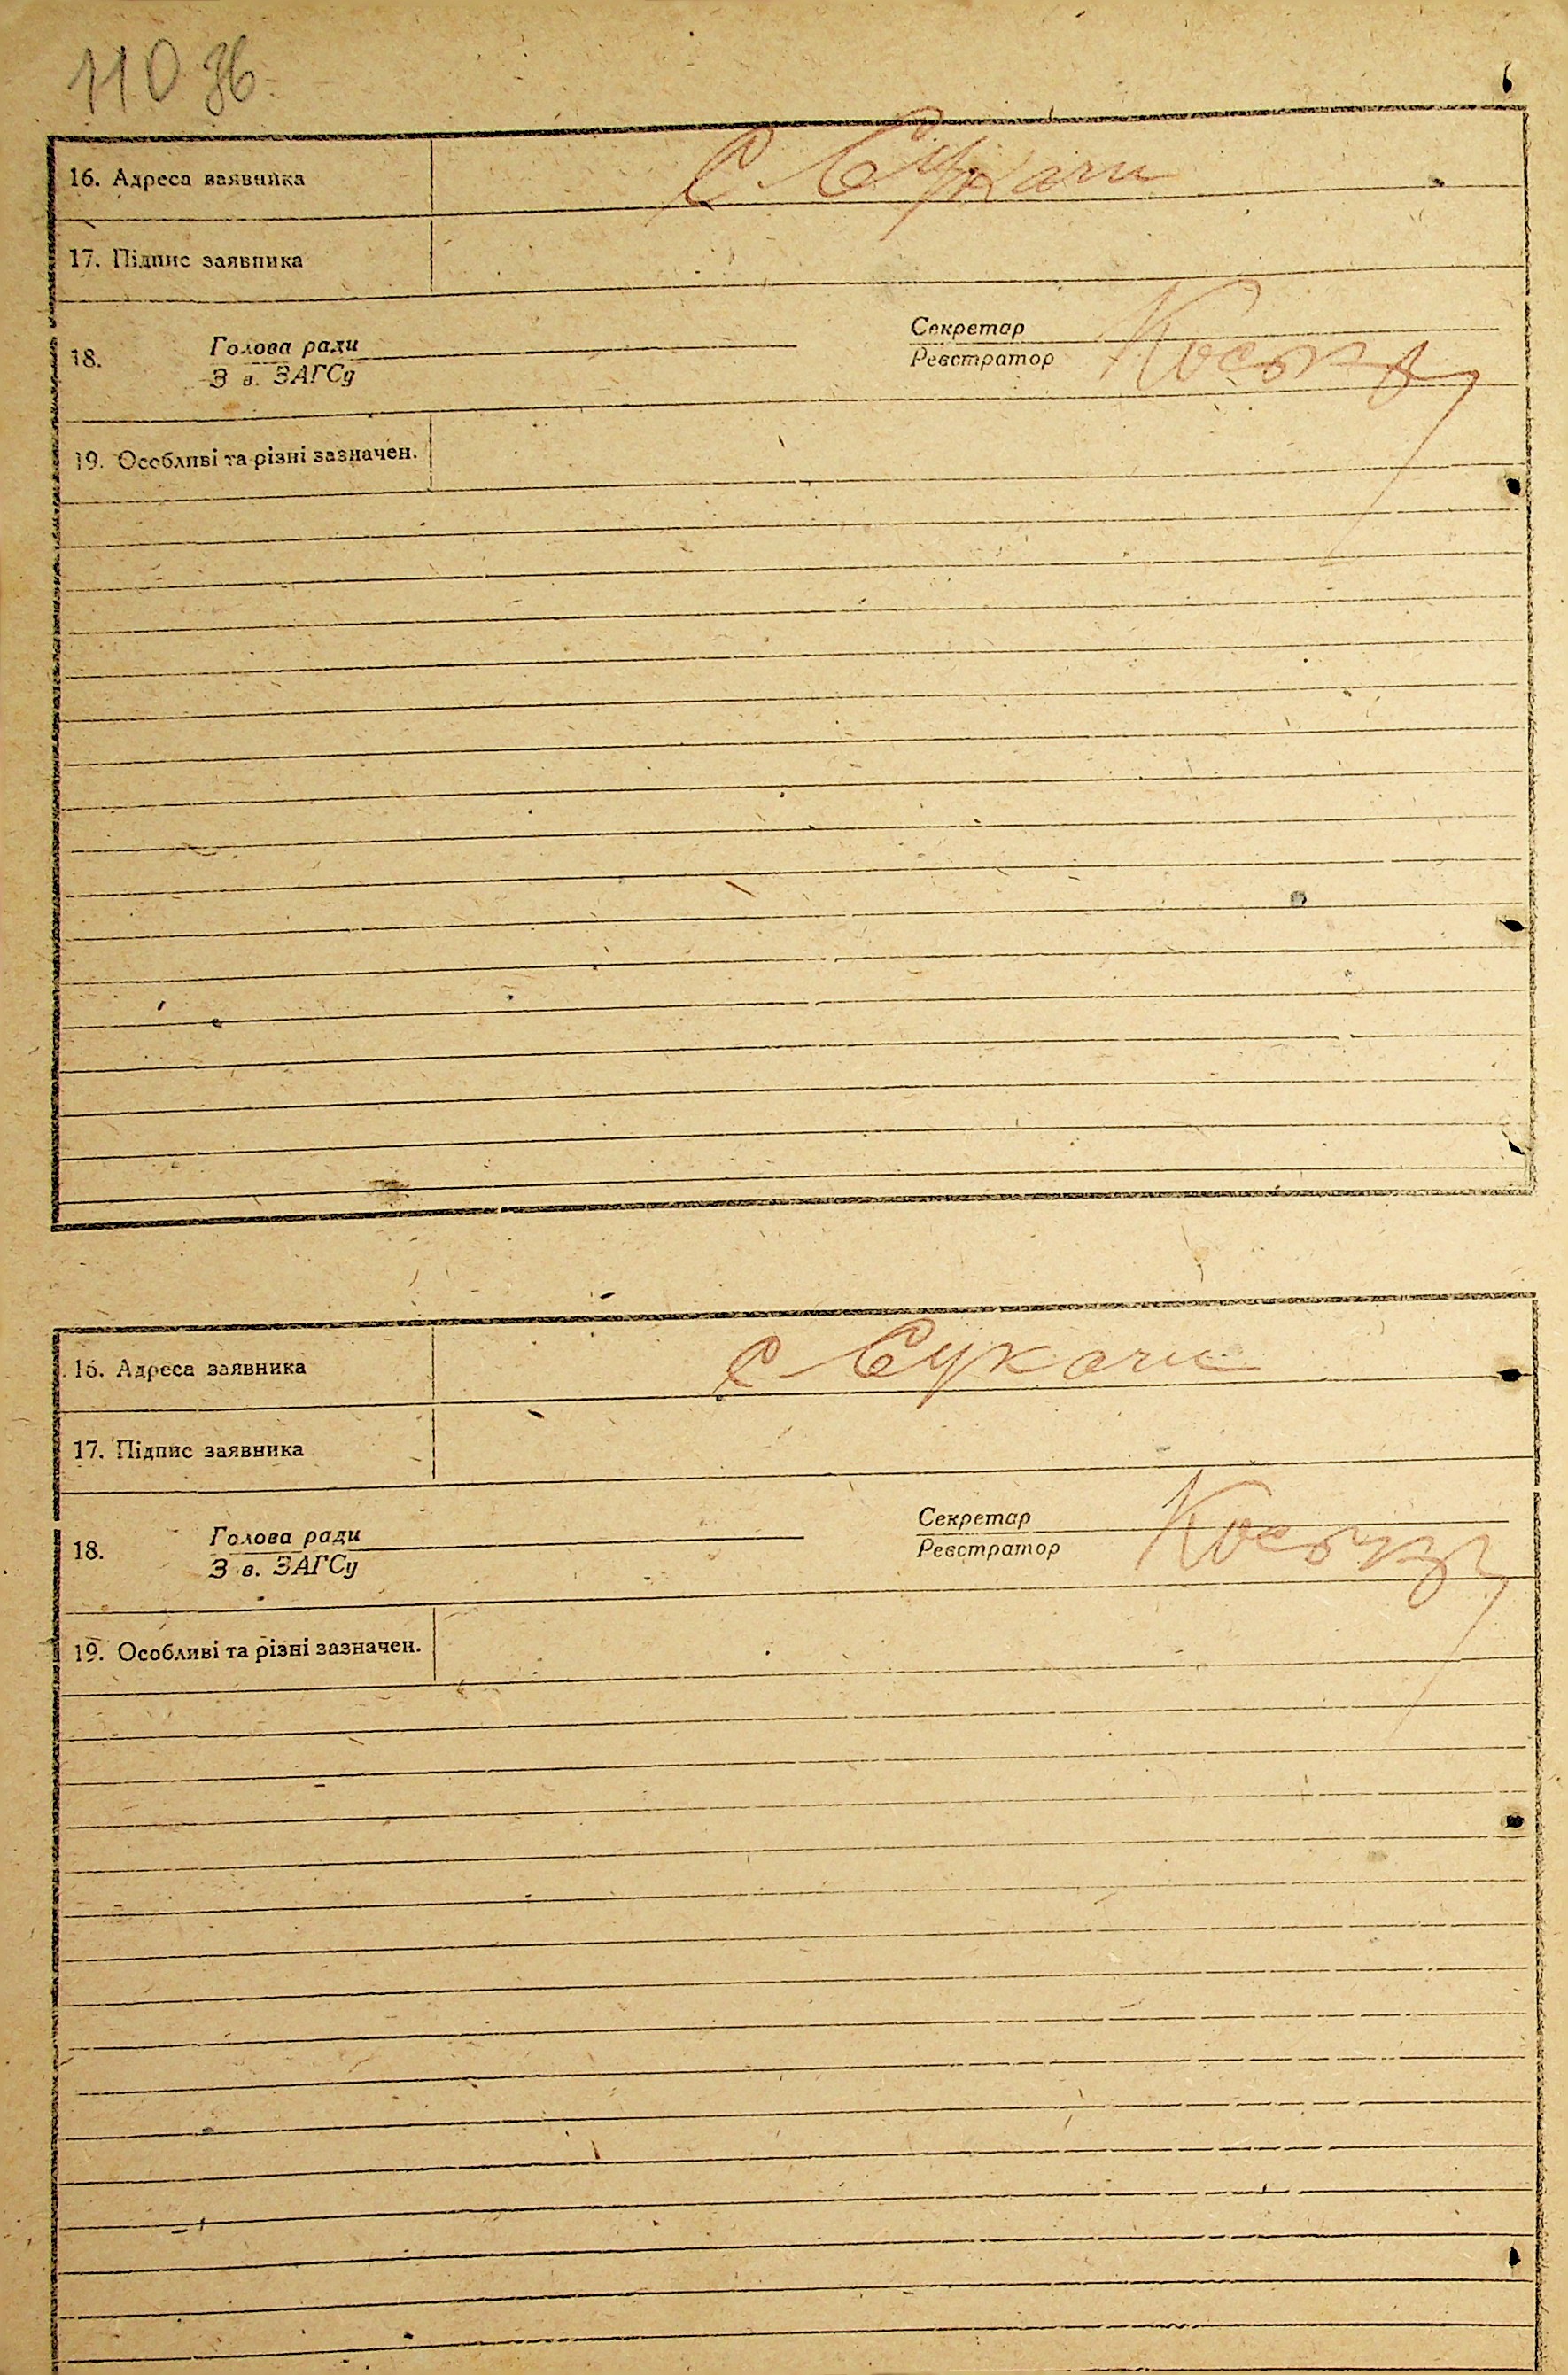 110 зв
16. Адреса заявника
С. Сукачи
17. Підпис заявника
18. Голова ради
З в. ЗАГСу
Секретар
Реєстратор
19. Особливі та різні зазначен.
16. Адреса заявника
С Сукачи
17. Підпис заявника
18. Голова ради
З в. ЗАГСу
Секретар
Реєстратор
19. Особливі та різні зазначен.